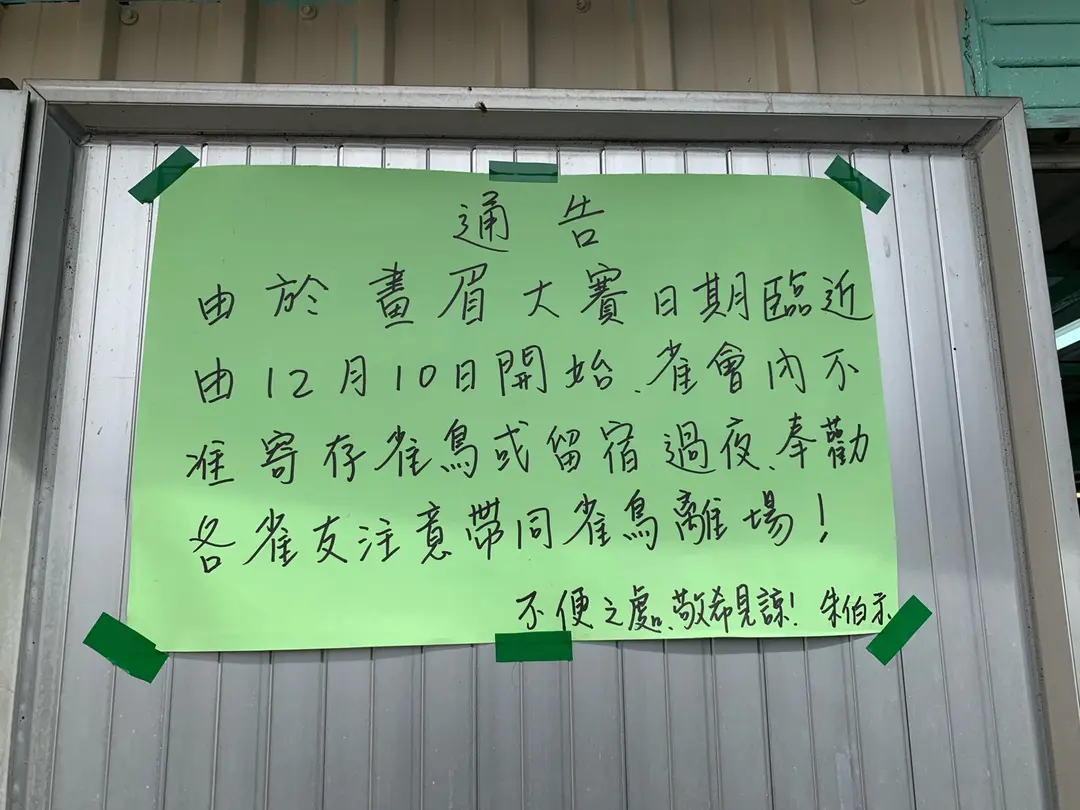 通告
由於畫眉大賽日期臨近
由12月10日開始、雀會內不
准寄存雀鳥或留宿過夜、奉勸
各雀友注意帶同雀鳥離場！
不便之處、敬希見諒！ 朱伯示